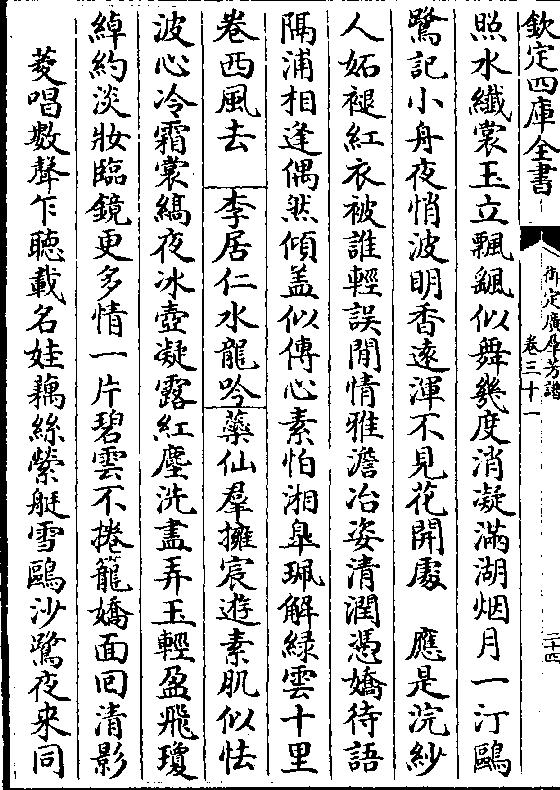 欽定四庫全書
御定廣羣芳譜
卷三十一
二十四
照水纖裳玉立飄颻似舞幾度消凝滿湖烟月一汀鷗
鷺記小舟夜悄波明香遠渾不見花開處　應是浣紗
人妬褪紅衣被誰輕誤閒情雅澹冶姿清潤憑嬌待語
隔浦相逢偶然傾盖似傳心素怕湘臯珮解緑雲十里
卷西風去　李居仁水龍吟蘂仙羣擁宸遊素肌似怯
波心冷霜裳縞夜冰壺凝露紅塵洗盡弄玉輕盈飛瓊
綽約淡妝臨鏡更多情一片碧雲不捲籠嬌面回清影
菱唱數聲乍聽載名娃藕絲縈艇雪鷗沙鷺夜來同